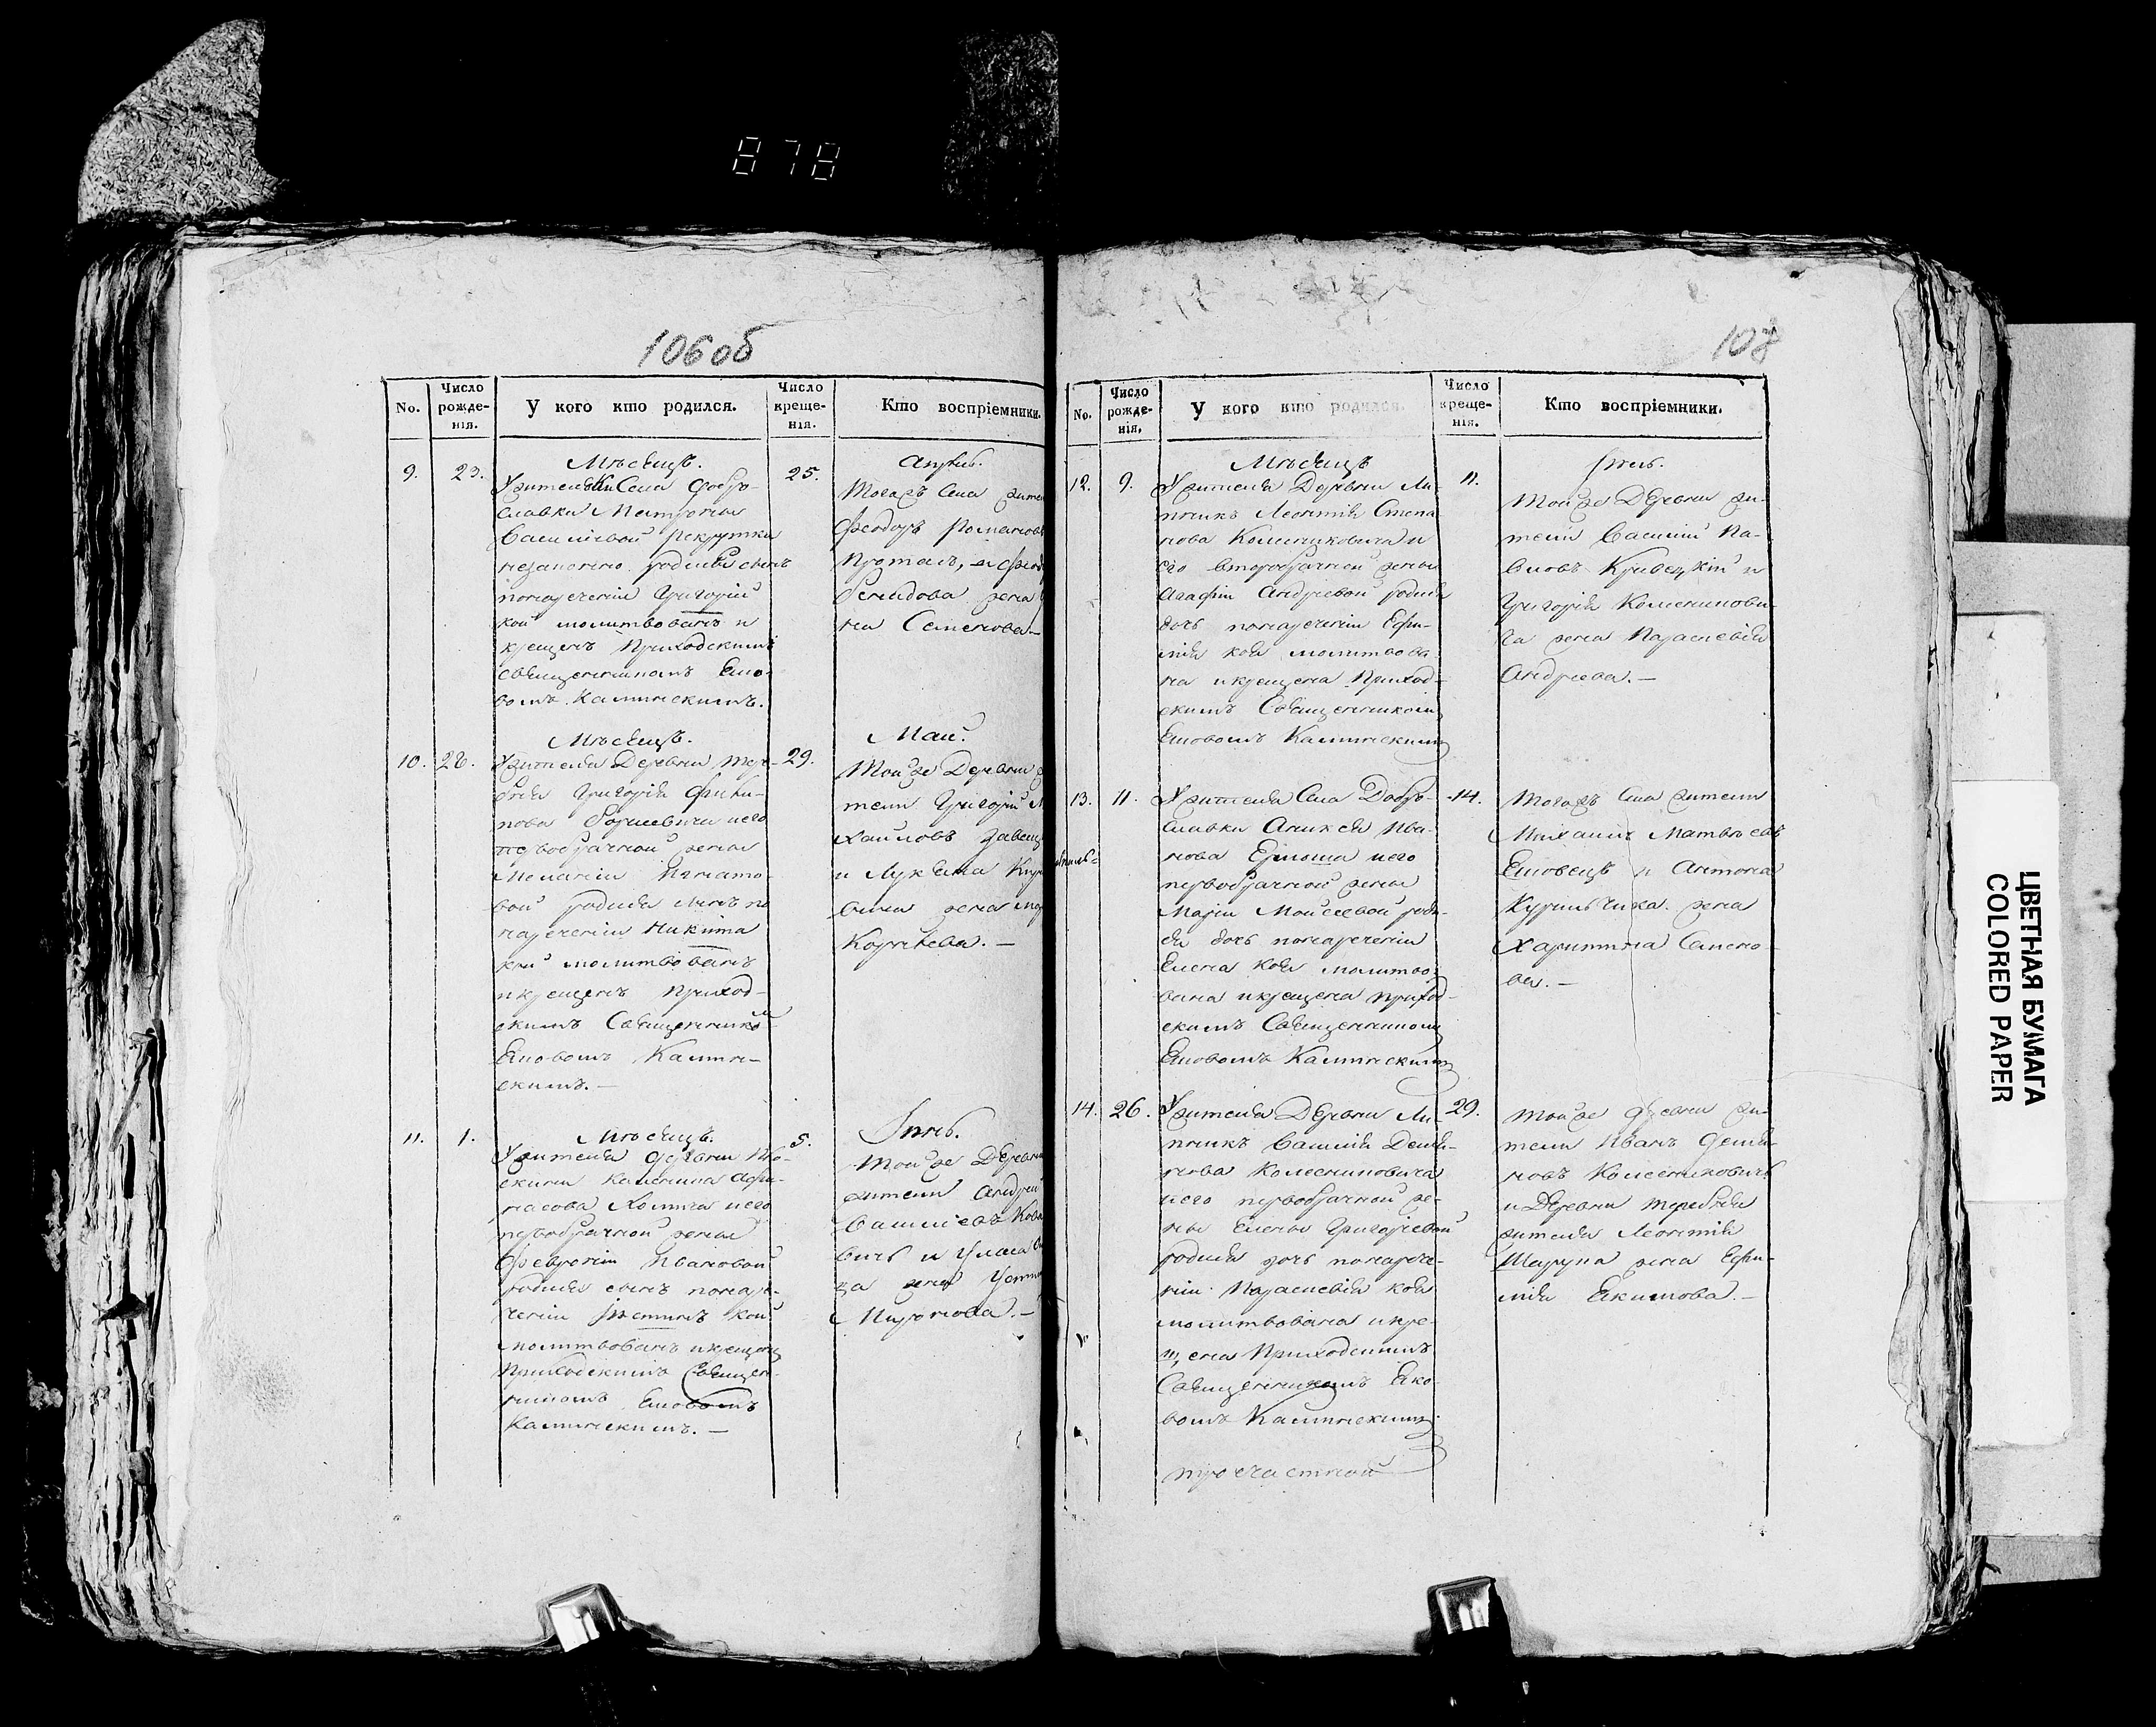 878
106об
No.
Число рожде-нія.
У кого кто родился.
Число креще-нія.
Кто воспріемники.
Мѣсяцъ. Апрѣль.
9. 23. 25.
Жительки Села Добро-
славки Матроны
Василіевой рекрутки
незаконно родився сынъ
по нареченіи Григорій
кой молитвованъ и
крещенъ Приходскимъ
священникомъ Еко-
вомъ Калинскимъ.
Тогожъ Села
Феодоръ Романовъ
жена
на Семенова.—
Мѣсяцъ. Маій.
10. 28. 29.
Жителя Деревни Тере-
бня Григорія Фили-
пова и его
первобрачной жены
Меланіи Игнато-
вой родился сынъ по
нареченіи Никита
кой молитвованъ
и крещенъ Приход-
скимъ Священнико
Ековомъ Калин-
скимъ.—
Той же Деревни
тели Григорій
хайловъ
и Лукьяна
жена
Корнѣева.—
Мѣсяцъ. Іюнь.
11. 1. 5.
Жителя Деревни
Калиника Афа-
насова Хомича и его
первобрачной жены
Февроніи Ивановой
родився сынъ по наре-
ченіи Іустинъ кой
молитвованъ и крещенъ
Приходскимъ Священ-
никомъ Ековомъ
Калинскимъ.—
Той же Деревни
жители Андрей
Василіевъ
вичь и
жена
Миронова.—
107
No.
Число рожде-нія.
У кого кто родился.
Число креще-нія.
Кто воспріемники.
Мѣсяцъ Іюль.
12. 9. 11.
Жителя Деревни Ли-
пникъ Леонтія Степа-
нова Колесниковича и
его второбрачной жены
Агафіи Андріевой родися
дочь по нареченіи Ефи-
мія коя молитвова-
на и крещена Приход-
скимъ Священникомъ
Ековомъ Калинскимъ
Той же Деревни жи-
тели Василій Па-
вловъ Кривецкій и
Григорія Колесникови-
ча жена Параскевія
Андріева.—
13. 11. 14.
Жителя Села Добро-
славки Аликсѣя Ива-
нова Ермоша и его
первобрачной жены
Маріи Мойсеевой роди-
ся дочь по нареченіи
Елена коя молитво-
вана и крещена приход-
скимъ Священникомъ
Ековомъ Калинскимъ
Тогожъ Села жители
Михаилъ Матвѣевъ
Ековецъ и Антона
Курильчика жена
Харитина Семено-
ва.—
14. 26. 29.
Жителя Деревни Ли-
пникъ Василія Демья-
нова Колесниковича
и его первобрачной же-
ны Елены Григоріевой
родися дочь по нарече-
ніи Параскевія коя
молитвована и кре-
щена Приходскимъ
Священникомъ Еко-
вомъ Калинскимъ.
Той же Деревни жи-
тели Иванъ Демья-
новъ Колесниковичь
и Деревни Теребня
жителя Леонтія
Шарупа жена Ефи-
мія Екимова.—
ЦВЕТНАЯ БУМАГА
COLORED PAPER